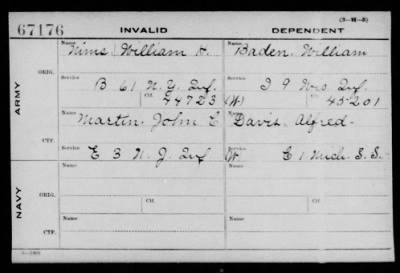 (3-M-5)
67176 INVALID DEPENDENT
Name Name
Nims, William H. Baden, William
ORIG.
Service Service
B 61 N.Y. Inf. I 9 Mo Inf.
Ctf. 44723 (W.) Ctf. 45201
ARMY
Name Name
Martin, John C Davis, Alfred
CTF.
Service Service
E 3 N.J. Inf W C 1 Mich. S.S.
Name Name
ORIG.
Ctf. Ctf.
NAVY
Name Name
CTF.